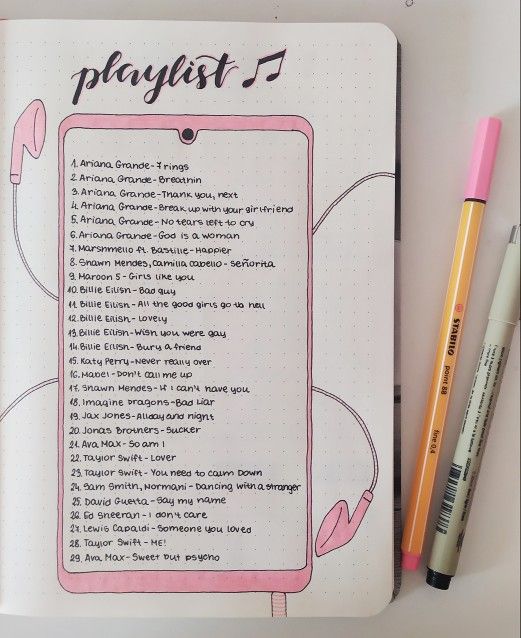 playlist
1. Ariana Grande - 7 rings
2. Ariana Grande - Breathin
3. Ariana Grande - Thank you, next
4. Ariana Grande - Break up with your girlfriend
5. Ariana Grande - No tears left to cry
6. Ariana Grande - God is a woman
7. Marshmello ft. Bastille - Happier
8. Shawn Mendes, Camilla Cabello - Señorita
9. Maroon 5 - Girls like you
10. Billie Eilish - Bad guy
11. Billie Eilish - All the good girls go to hell
12. Billie Eilish - Lovely
13. Billie Eilish - Wish you were gay
14. Billie Eilish - Bury a friend
15. Katy Perry - Never really over
16. Mabel - Don't call me up
17. Shawn Mendes - If I can't have you
18. Imagine Dragons - Bad Liar
19. Jax Jones - All day and night
20. Jonas Brothers - Sucker
21. Ava Max - So am I
22. Taylor Swift - Lover
23. Taylor Swift - You need to calm down
24. Sam Smith, Normani - Dancing with a stranger
25. David Guetta - Say my name
26. Ed Sheeran - I don't care
27. Lewis Capaldi - Someone you loved
28. Taylor Swift - ME!
29. Ava Max - Sweet but psycho
STABILO
point 88
fine 0,4